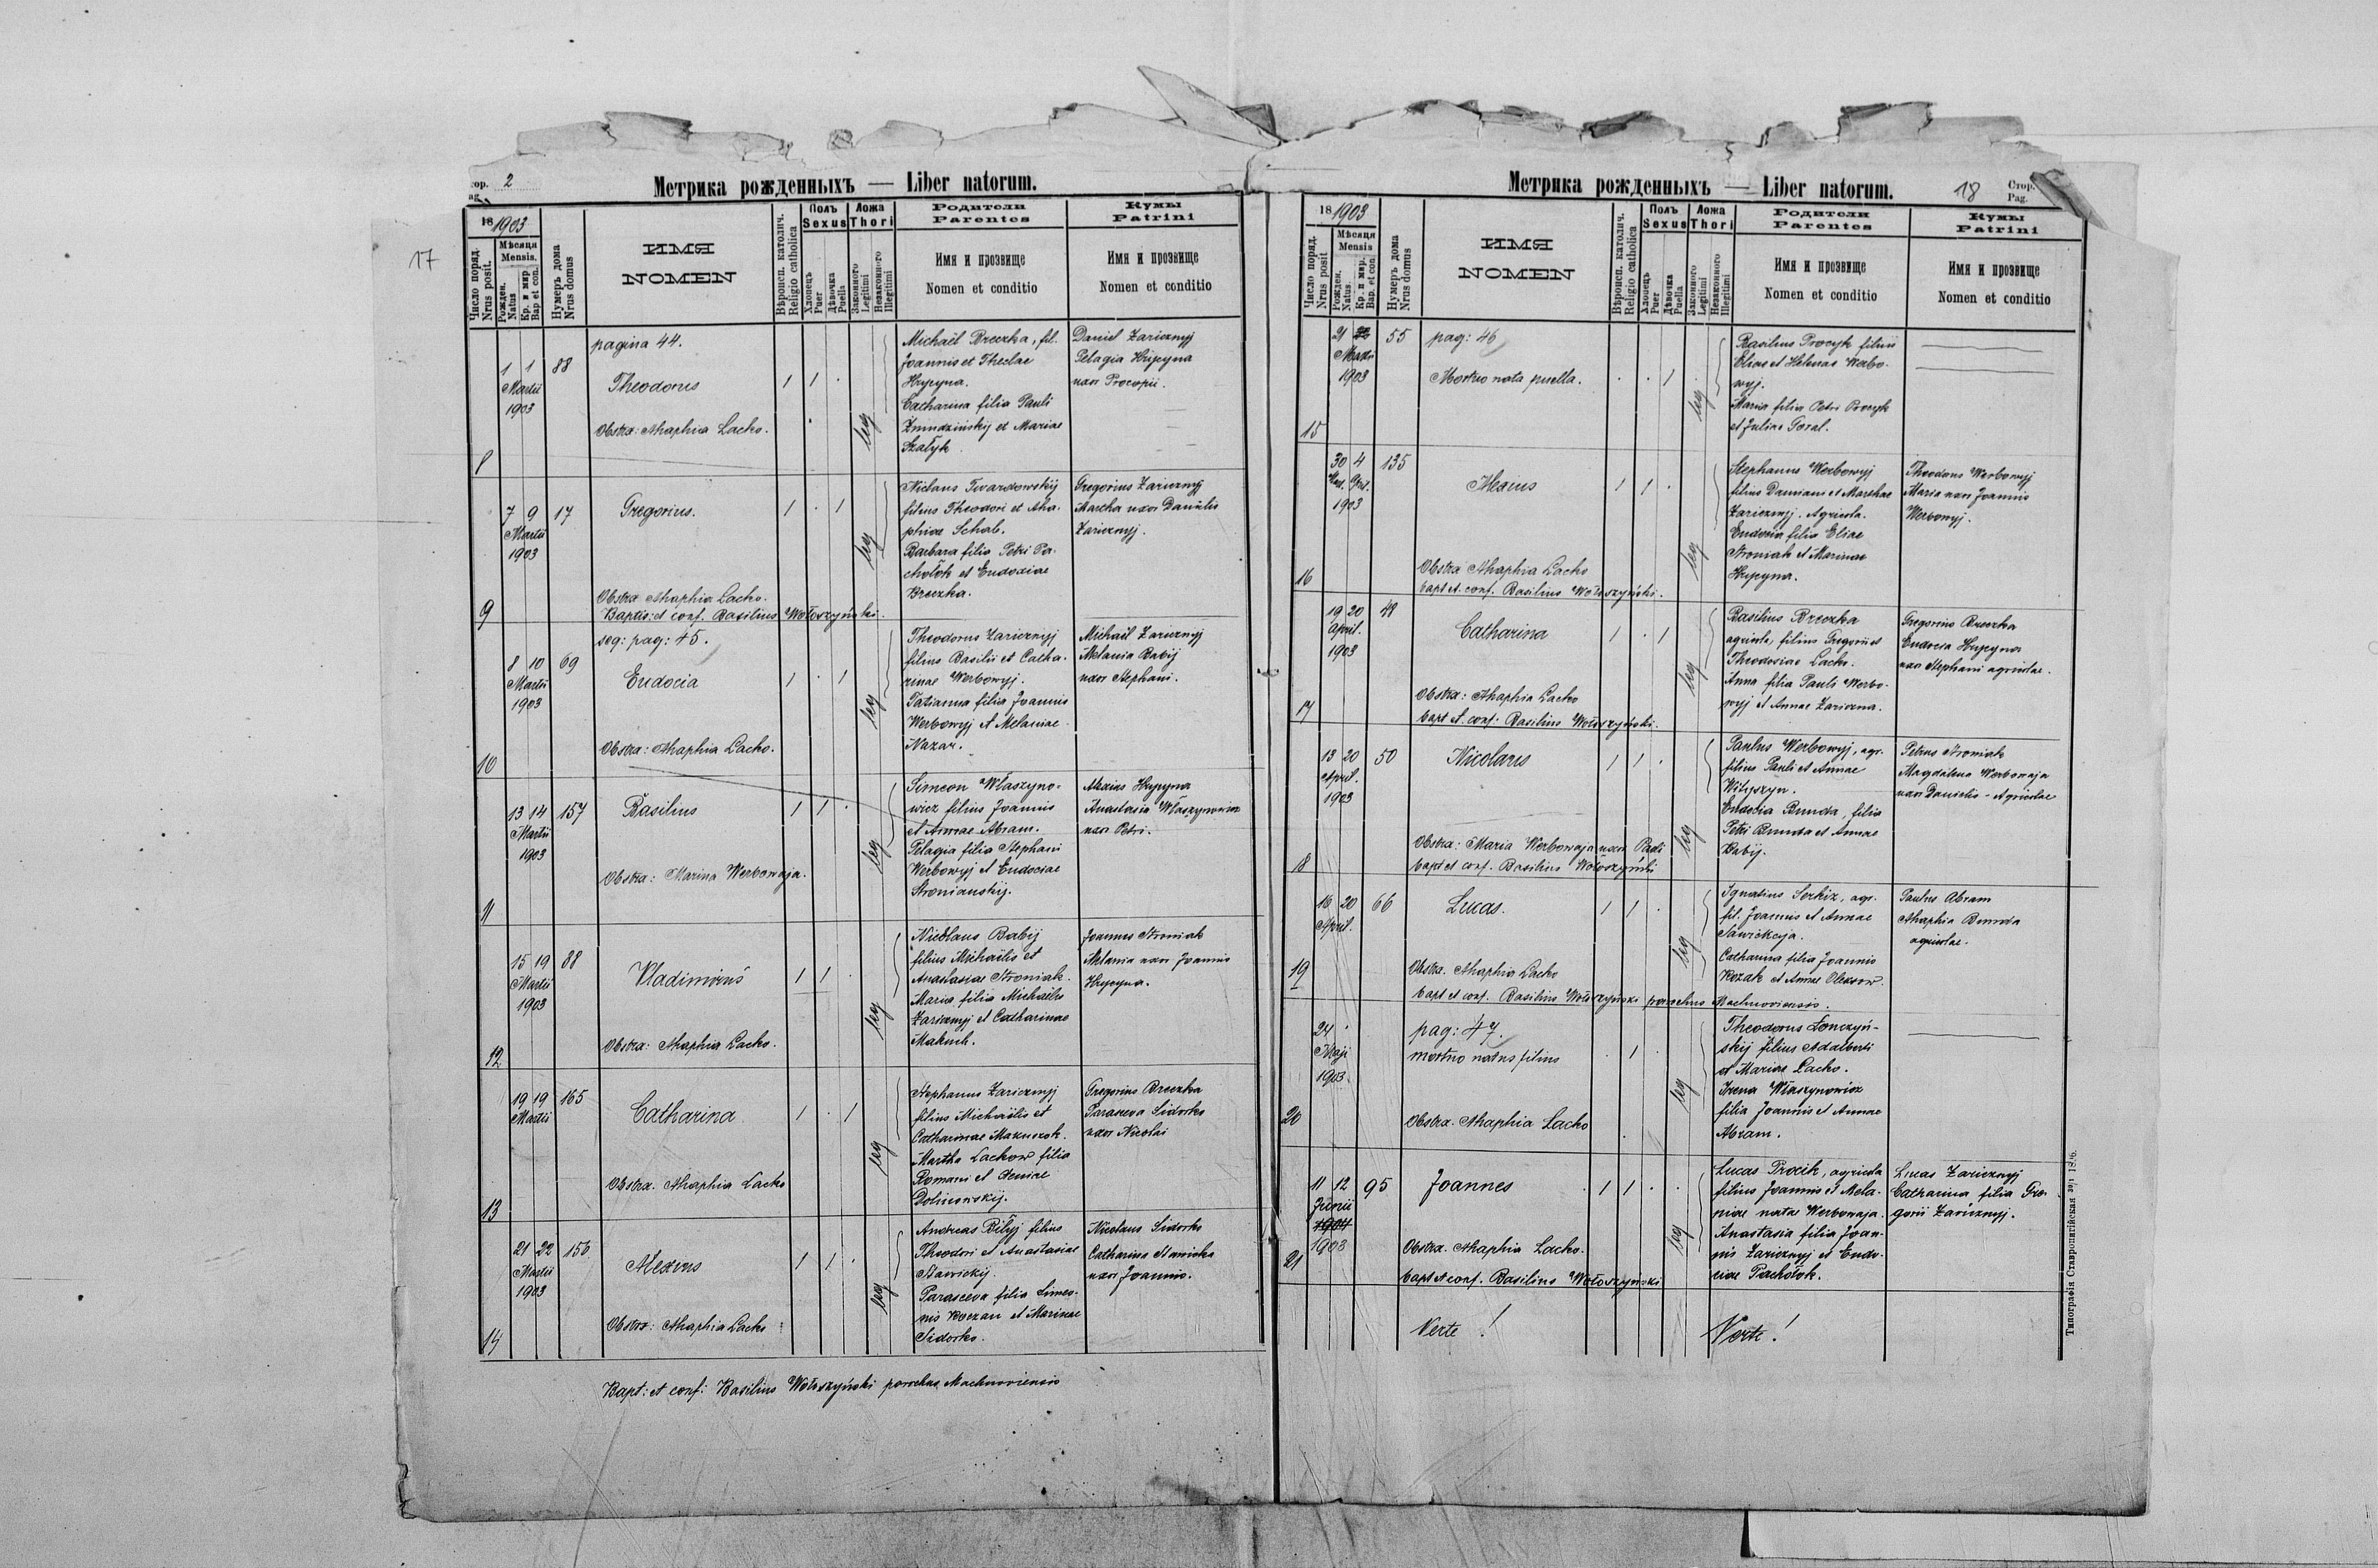 17
Стор. 2
Pag.
Метрика рожденныхъ — Liber natorum.
18 1903
Число поряд. Nrus posit.
Мѣсяця Mensis.
Рожден. Natus
Кр. и мир. Bap et con.
Нумеръ дома Nrus domus
ИМЯ
NOMEN
Вѣроисп. католич. Religio catholica
Полъ Sexus
Хлопецъ Puer
Дѣвочка Puella
Ложа Thori
Законного Legitimi
Незаконного Illegitimi
Родители
Parentes
Имя и прозвище
Nomen et conditio
Кумы
Patrini
Имя и прозвище
Nomen et conditio
pagina 44.
8
1 1 88
Martii
1903
Theodorus
1 1 .
leg
Obstra: Ahaphia Lacko.
Michaël Breczka, fil.
Joannis et Theclae
Hrycyna.
Catharina filia Pauli
Żmudzińskij et Mariae
Szałyk
Daniel Zaricznyj
Pelagia Hrycyna
uxor Procopii.
9
7 9 17
Martii
1903
Gregorius.
1 . 1
leg
Obstra Ahaphia Lacko.
Baptis: et conf. Basilius Wołoszyński.
Nicolaus Twardowskij
filius Theodori et Aha-
phiae Schab.
Barbara filia Petri Pa-
chołok et Eudociae
Breczka.
Gregorius Zaricznyj
Martha uxor Daniëlis
Zaricznyj.
seq: pag: 45.
10
8 10 69
Martii
1903
Eudocia
1 . 1
leg
Obstra: Ahaphia Lacko.
Theodorus Zaricznyj
filius Basilii et Catha-
rinae Werbowyj.
Tatianna filia Joannis
Werbowyj et Melaniae
Nazar.
Michaël Zaricznyj
Melania Babij
uxor Stephani.
11
13 14 157
Martii
1903
Basilius
1 1 .
leg
Obstra: Marina Werbowaja.
Simeon Właszyno-
wicz filius Joannis
et Annae Abram.
Pelagia filia Stephani
Werbowyj et Eudociae
Stronianskij.
Alexius Hrycyna
Anastasia Właszynowicz
uxor Petri.
12
15 19 88
Martii
1903
Vladimirus
1 1 .
leg
Obstra: Ahaphia Lacko.
Nicolaus Babij
filius Michaëlis et
Anastasiae Stroniak.
Maria filia Michaëlis
Zaricznyj et Catharinae
Makuch.
Joannes Stroniak
Melania uxor Joannis
Hrycyna.
13
19 19 165
Martii
Catharina
1 . 1
leg
Obstra. Ahaphia Lacko
Stephanus Zaricznyj
filius Michaëlis et
Catharinae
Martha Lackow filia
Romani et
Gregorius Breczka
Parasceva Sidorko
uxor Nicolai
14
21 22 156
Martii
1903
Alexius
1 1 .
leg
Obstra: Ahaphia Lacko
Andreas Biłyj filius
Theodori et Anastasiae
Sawickij.
Parasceva filia Simeo-
nis Koczan et Marinae
Sidorko.
Nicolaus Sidorko
Catharina
uxor Joannis.
Bapt: et conf: Basilius Wołoszyński parochus Machnoviensis
Метрика рожденныхъ — Liber natorum.
18
Стор.
Pag.
18 1903
Число поряд. Nrus posit
Мѣсяця Mensis
Рожден. Natus.
Кр. и мир. Bap. et con
Нумеръ дома Nrus domus
ИМЯ
NOMEN
Вѣроисп. католич. Religio catholica
Полъ Sexus
Хлопецъ Puer
Дѣвочка Puella
Ложа Thori
Законного Legitimi
Незаконного Illegitimi
Родители
Parentes
Имя и прозвище
Nomen et conditio
Кумы
Patrini
Имя и прозвище
Nomen et conditio
15
21 22 55
Martii
1903
pag: 46
Mortuo nata puella.
. . 1 .
leg
Basilius Procyk filius
Eliae et Helenae Werbo-
wyj.
Maria filia Petri Procyk
et Juliae Goral.
16
30 4 135
Mar. Apr.
1903
Alexius
1 1 .
leg
Obstra Ahaphia Lacko
bapt et. conf. Basilius Wołoszyński.
Stephanus Werbowyj
filius Damiani et Marthae
Zaricznyj. Agricola.
Eudocia filia Eliae
Stroniak et Marinae
Hrycyna.
Theodorus Werbowyj
Maria uxor Joannis
Werbowyj.
17
19 20 48
April.
1903
Catharina
1 . 1
leg
Obstra: Ahaphia Lacko
bapt et. conf. Basilius Wołoszyński.
Basilius Breczka
agricola, filius Gregorii et
Theodosiae Lacko.
Anna filia Pauli Werbo-
wyj et Annae Zariczna.
Gregorius Breczka
Eudocia Hrycyna
uxor Stephani agricolae.
18
13 20 50
April.
1903
Nicolaus
1 1 .
leg
Obstra: Maria Werbowaja uxor Pauli
bapt et conf. Basilius Wołoszyński
Paulus Werbowyj, agr.
filius Pauli et Annae
Wilyszyn.
Eudocia Bunda, filia
Petri Bunda et Annae
Babij.
Petrus Stroniak
Magdalena Werbowaja
uxor Danielis - Agricolae
19
16 20 66
April.
Lucas.
1 1 .
leg
Obstra. Ahaphia Lacko
bapt et conf. Basilius Wołoszyński parochus Machnoviensis.
Ignatius Serkiz, agr.
fil. Joannis et Annae
Sawickaja.
Catharina filia Joannis
Kozak et Annae Oleksow.
Paulus Abram
Ahaphia Bunda
agricolae.
20
24
Maji
1903.
pag: 47.
mortuo natus filius
. 1 .
leg
Obstra. Ahaphia Lacko
Theodorus Łonczyń-
skij filius Adalberti
et Mariae Lacko.
Irena Właszynowicz
filia Joannis et Annae
Abram.
21
11 12 95
Junii
1904
1903
Joannes
1 1 .
leg
Obstra. Ahaphia Lacko.
bapt et conf. Basilius Wołoszyński
Lucas Procik, agricola
filius Joannis et Mela-
niae natae Werbowaja.
Anastasia filia Joan-
nis Zaricznyj et Eudo-
ciae Pachołok.
Lucas Zaricznyj
Catharina filia Gre-
gorii Zaricznyj.
Verte!
Verte!
Типографія Ставропигійская